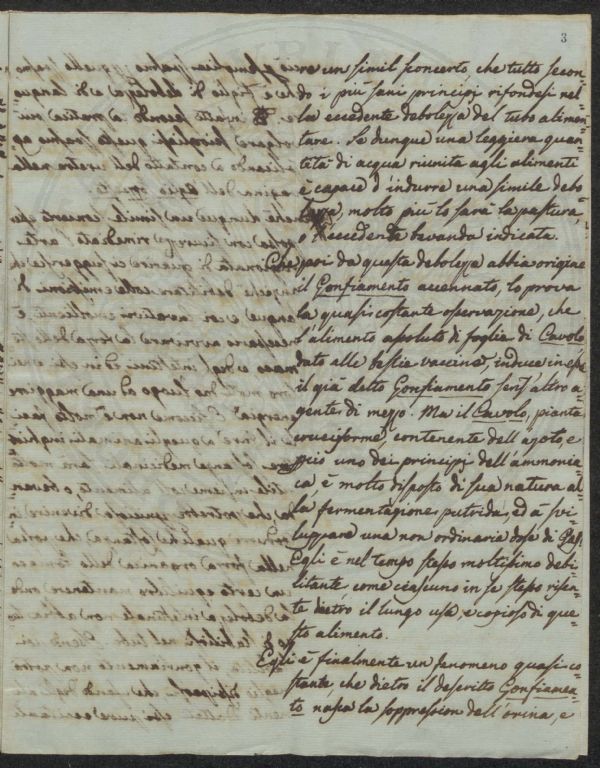 3
re un simil sconcerto, che tutto secon-
do i più sani principj rifondesi nel-
la eccedente debolezza del tubo alimen-
tare. Se dunque una leggiera quan-
tità di acqua riunita agli alimenti
è capace d'indurre una simile debo-
lezza, molto più lo sarà la pastura,
o l'eccedente bevanda indicate.
Che poi da questa debolezza abbia origine
il Gonfiamento accennato, lo prova
la quasi costante osservazione, che
l'alimento assoluto di foglia di Cavolo
dato alle bestie vaccine, induce in esse
il già detto Gonfiamento senz'altro a-
gente di mezzo. Ma il Cavolo, pianta
cruciforme, contenente dell'azoto, e
perciò uno dei principj dell'ammonia-
ca, è molto disposto di sua natura al-
la fermentazione putrida, ed a svi-
luppare una non ordinaria dose di Gas.
Egli è nel tempo stesso moltissimo debi-
litante, come ciascuno in se stesso risen-
te dietro il lungo uso, e copioso di que-
sto alimento.
Egli è finalmente un fenomeno quasi co-
stante, che dietro il descritto Gonfiamen-
to nasca la soppression dell'orina, e